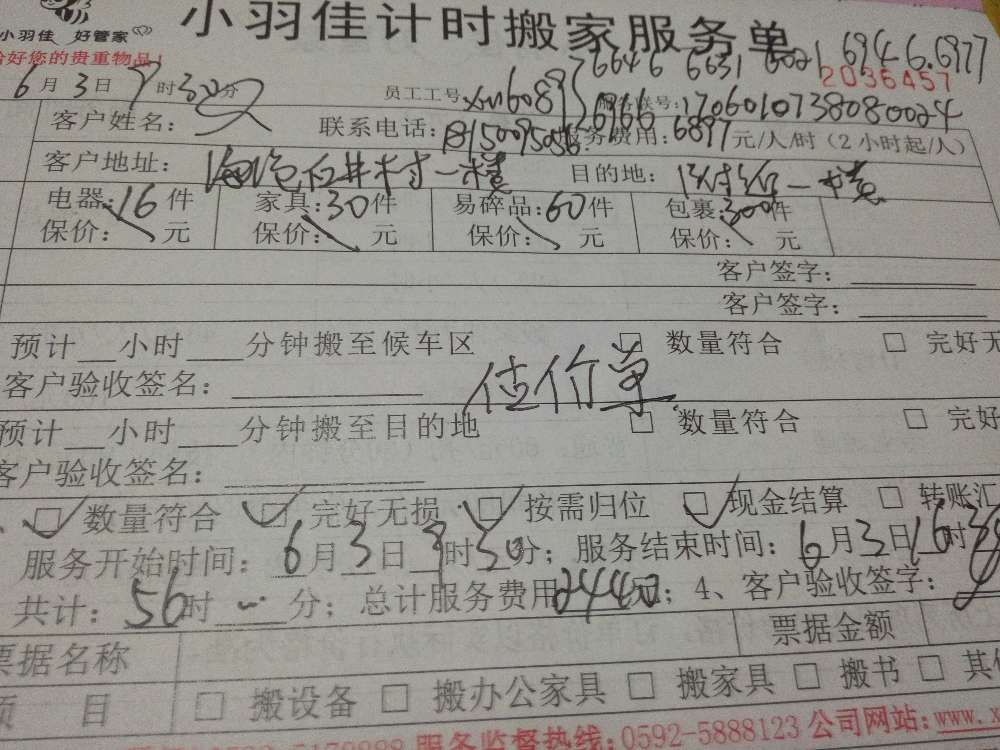 小羽佳计时搬家服务单
小羽佳 好管家
好您的贵重物品!
6646 6631 6021 6946.6977
2036457
6月3日 时30分 员工工号 xm6089 6966 服务联号:1706010738080024
客户姓名: 联系电话: 服务费用:6897元/人/时(2小时起/人)
客户地址: 石井村一楼 目的地: 一楼
电器:16件 家具:30件 易碎品:60件 包裹:300件
保价: 元 保价: 元 保价: 元 保价: 元
客户签字:
客户签字:
预计 小时 分钟搬至候车区 □ 数量符合 □ 完好无
客户验收签名: 估价单
预计 小时 分钟搬至目的地 □ 数量符合 □ 完好
客户验收签名:
☑ 数量符合 ☑ 完好无损 ☑ 按需归位 ☑ 现金结算 □ 转账汇
服务开始时间:6月3日 时30分;服务结束时间:6月3日16时
共计:56时 分;总计服务费用2440元;4、客户验收签字:
票据名称 票据金额
项 目 □ 搬设备 □ 搬办公家具 □ 搬家具 □ 搬书 □ 其
服务监督热线:0592-5888123 公司网站:www.x